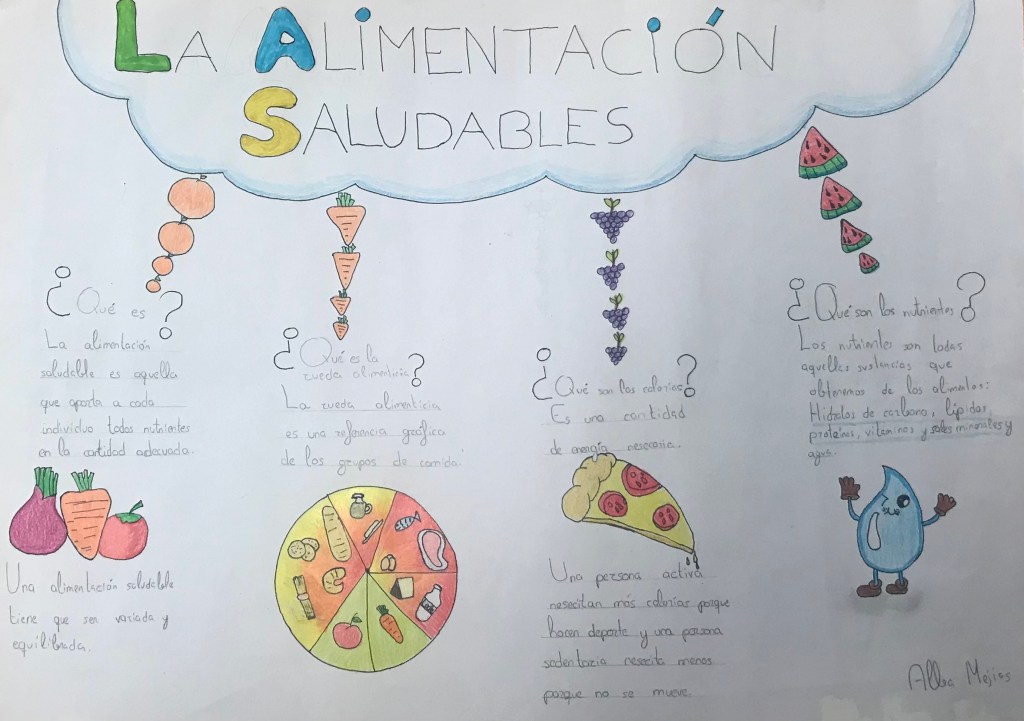 LA ALIMENTACIÓN
SALUDABLES
¿Qué es?
La alimentación
saludable es aquella
que aporta a cada
individuo todos nutrientes
en la cantidad adecuada.
Una alimentación saludable
tiene que ser variada y
equilibrada.
¿Qué es la
rueda alimenticia?
La rueda alimenticia
es una referencia gráfica
de los grupos de comida.
¿Qué son las calorías?
Es una cantidad
de energía nesesaria.
Una persona activa
nesecitan más calorías porque
hacen deporte y una persona
sedentaria nesecita menos
porque no se mueve.
¿Qué son los nutrientes?
Los nutrientes son todas
aquellas sustancias que
obtenemos de los alimentos:
Hidratos de carbono, lípidos,
proteínas, vitaminas y sales minerales y
agua.
Alba Mejias